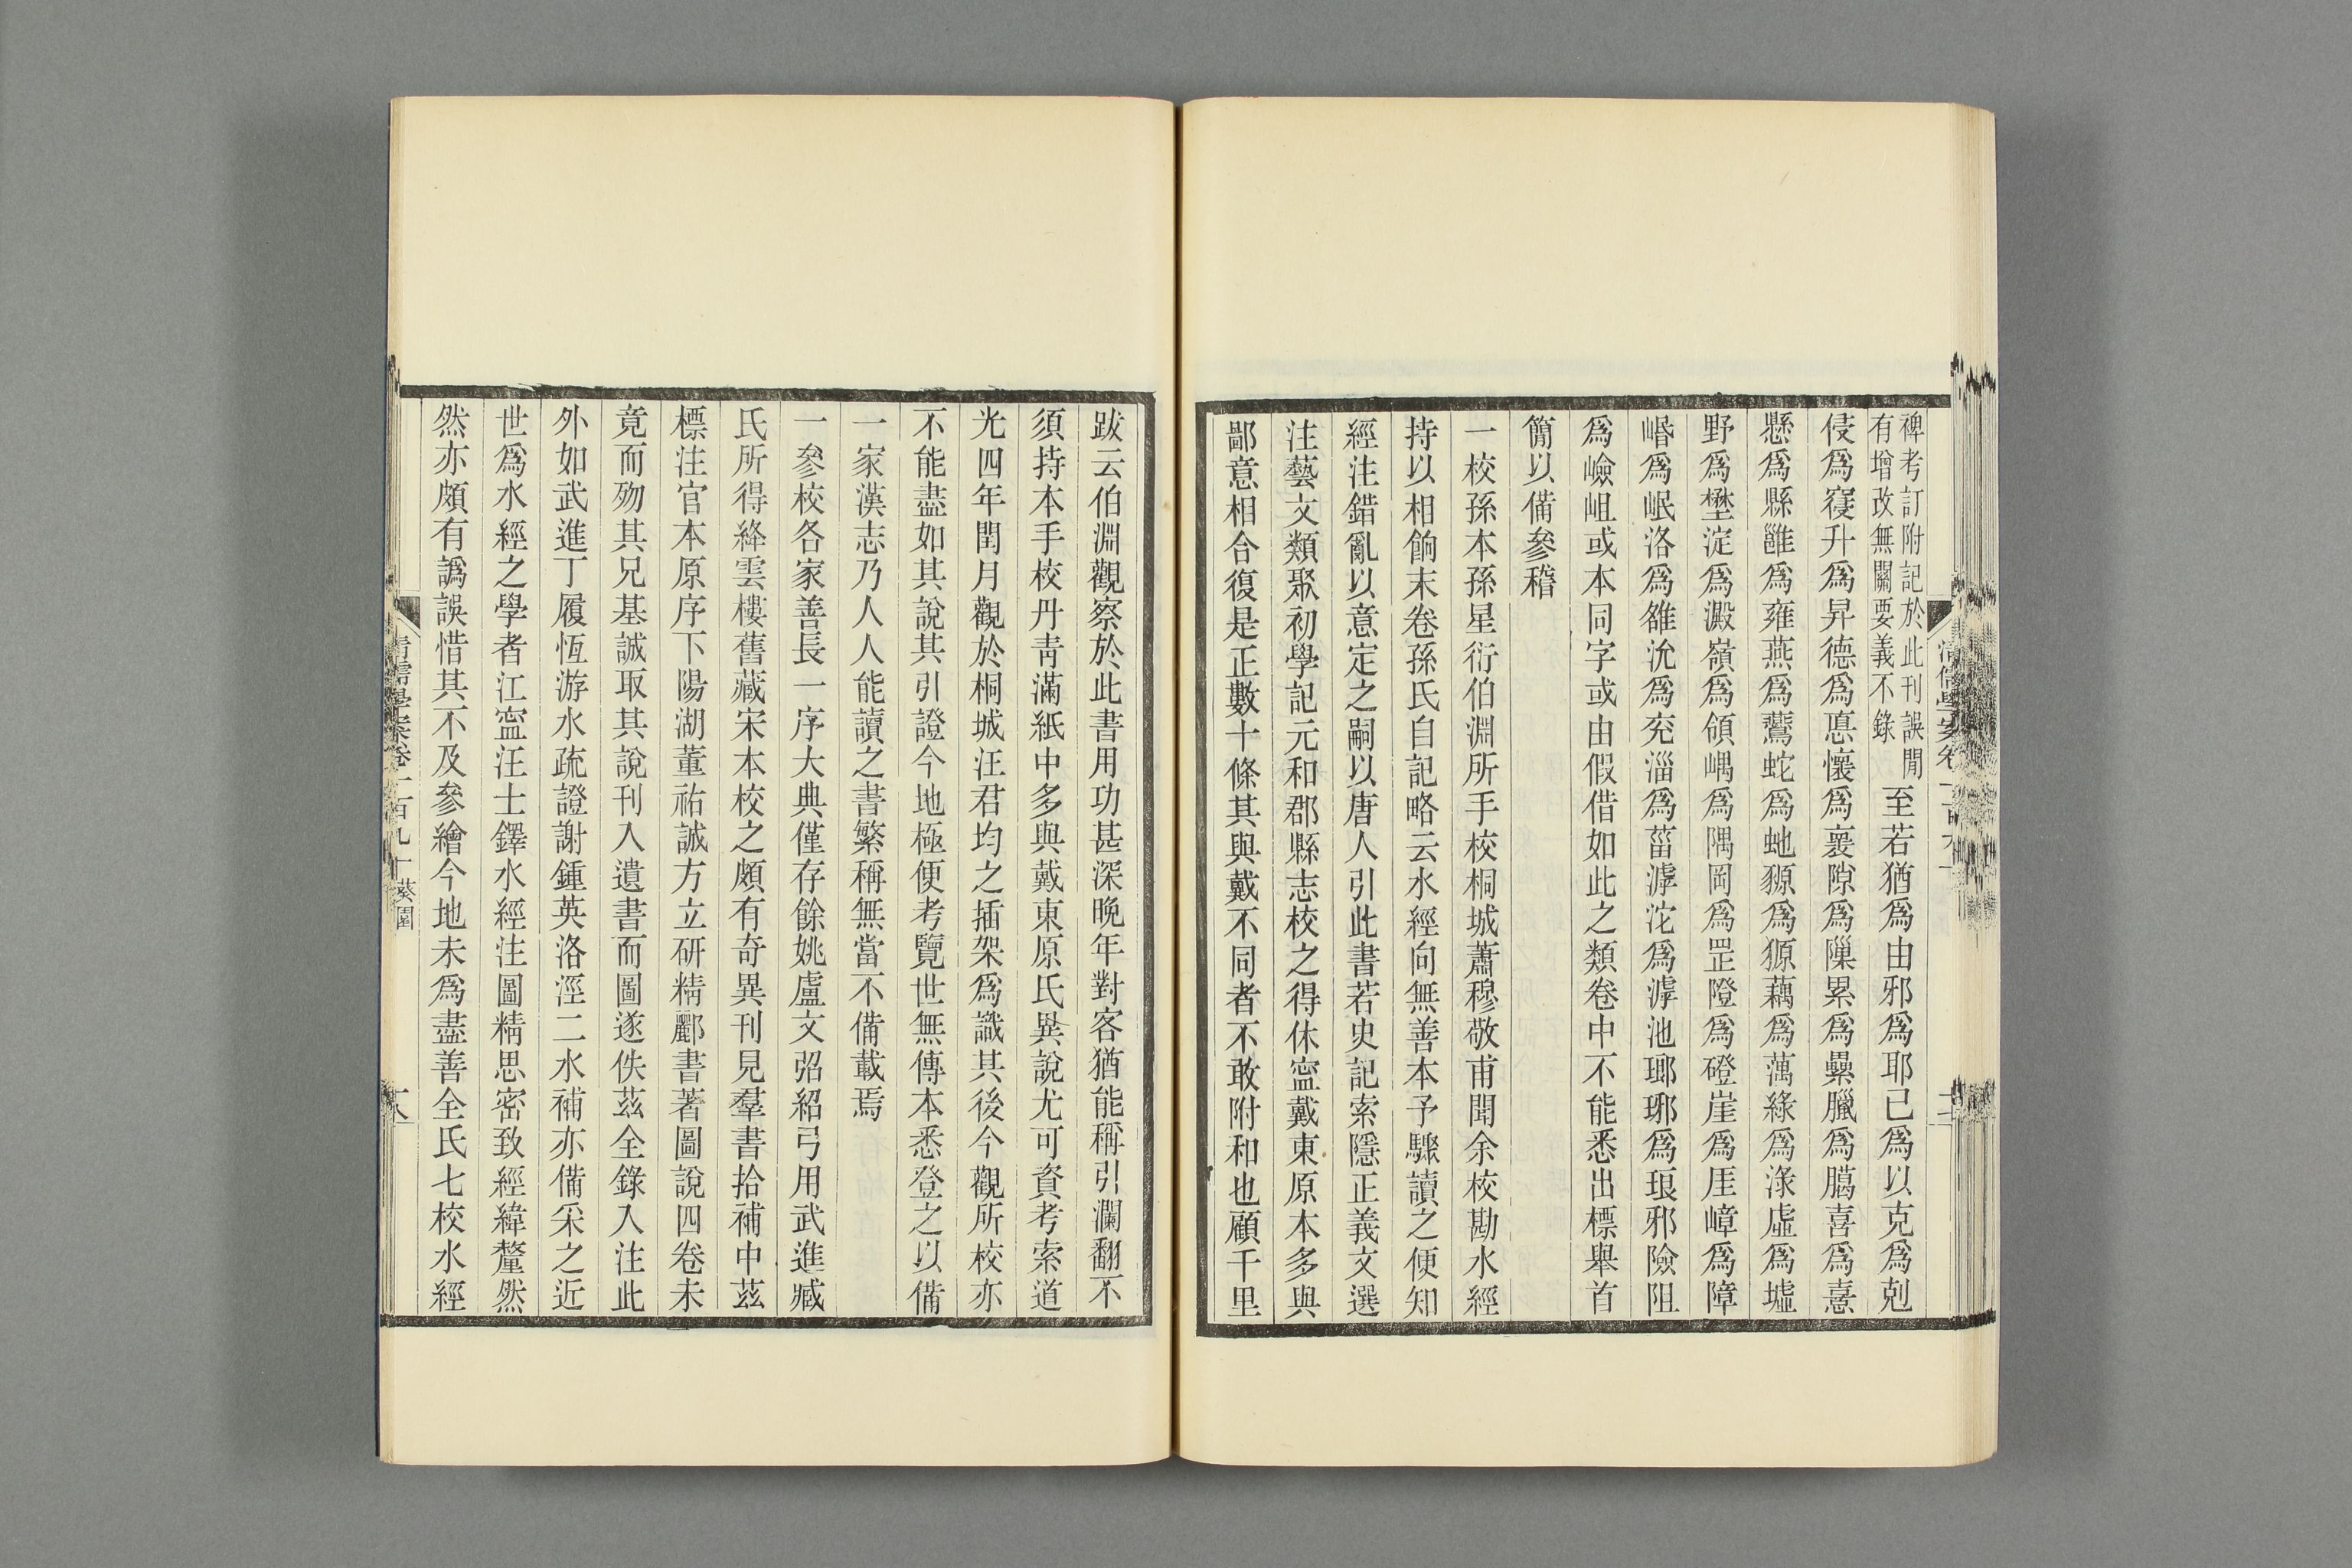 裨考訂附記於此刊誤閒
有增改無關要義不錄
至若猶爲由邪爲耶已爲以克爲剋
侵爲寖升爲昇德爲悳懷爲褱隙爲隟累爲纍臘爲臈喜爲憙
懸爲縣雝爲雍燕爲鷰蛇爲虵獂爲獂藕爲蕅綠爲淥虛爲墟
野爲壄淀爲澱嶺爲領嵎爲隅岡爲罡隥爲磴崖爲厓嶂爲障
㟭爲岷洛爲雒沇爲兖淄爲菑滹沱爲滹池瑯琊爲琅邪險阻
爲嶮岨或本同字或由假借如此之類卷中不能悉出標舉首
簡以備參稽
一校孫本孫星衍伯淵所手校桐城蕭穆敬甫聞余校勘水經
持以相餉末卷孫氏自記略云水經向無善本予驟讀之便知
經注錯亂以意定之嗣以唐人引此書若史記索隱正義文選
注藝文類聚初學記元和郡縣志校之得休寍戴東原本多與
鄙意相合復是正數十條其與戴不同者不敢附和也顧千里
跋云伯淵觀察於此書用功甚深晚年對客猶能稱引瀾翻不
須持本手校丹靑滿紙中多與戴東原氏異說尤可資考索道
光四年閏月觀於桐城汪君均之插架爲識其後今觀所校亦
不能盡如其說其引證今地極便考覽世無傳本悉登之以備
一家漢志乃人人能讀之書繁稱無當不備載焉
一參校各家善長一序大典僅存餘姚盧文弨紹弓用武進臧
氏所得絳雲樓舊藏宋本校之頗有奇異刊見羣書拾補中茲
標注官本原序下陽湖董祐誠方立研精酈書著圖說四卷未
竟而歾其兄基誠取其說刊入遺書而圖遂佚茲全錄入注此
外如武進丁履恆游水疏證謝鍾英洛涇二水補亦備采之近
世爲水經之學者江寍汪士鐸水經注圖精思密致經緯釐然
然亦頗有譌誤惜其不及參繪今地未爲盡善全氏七校水經
清儒學案卷一百九十 葵園
十八